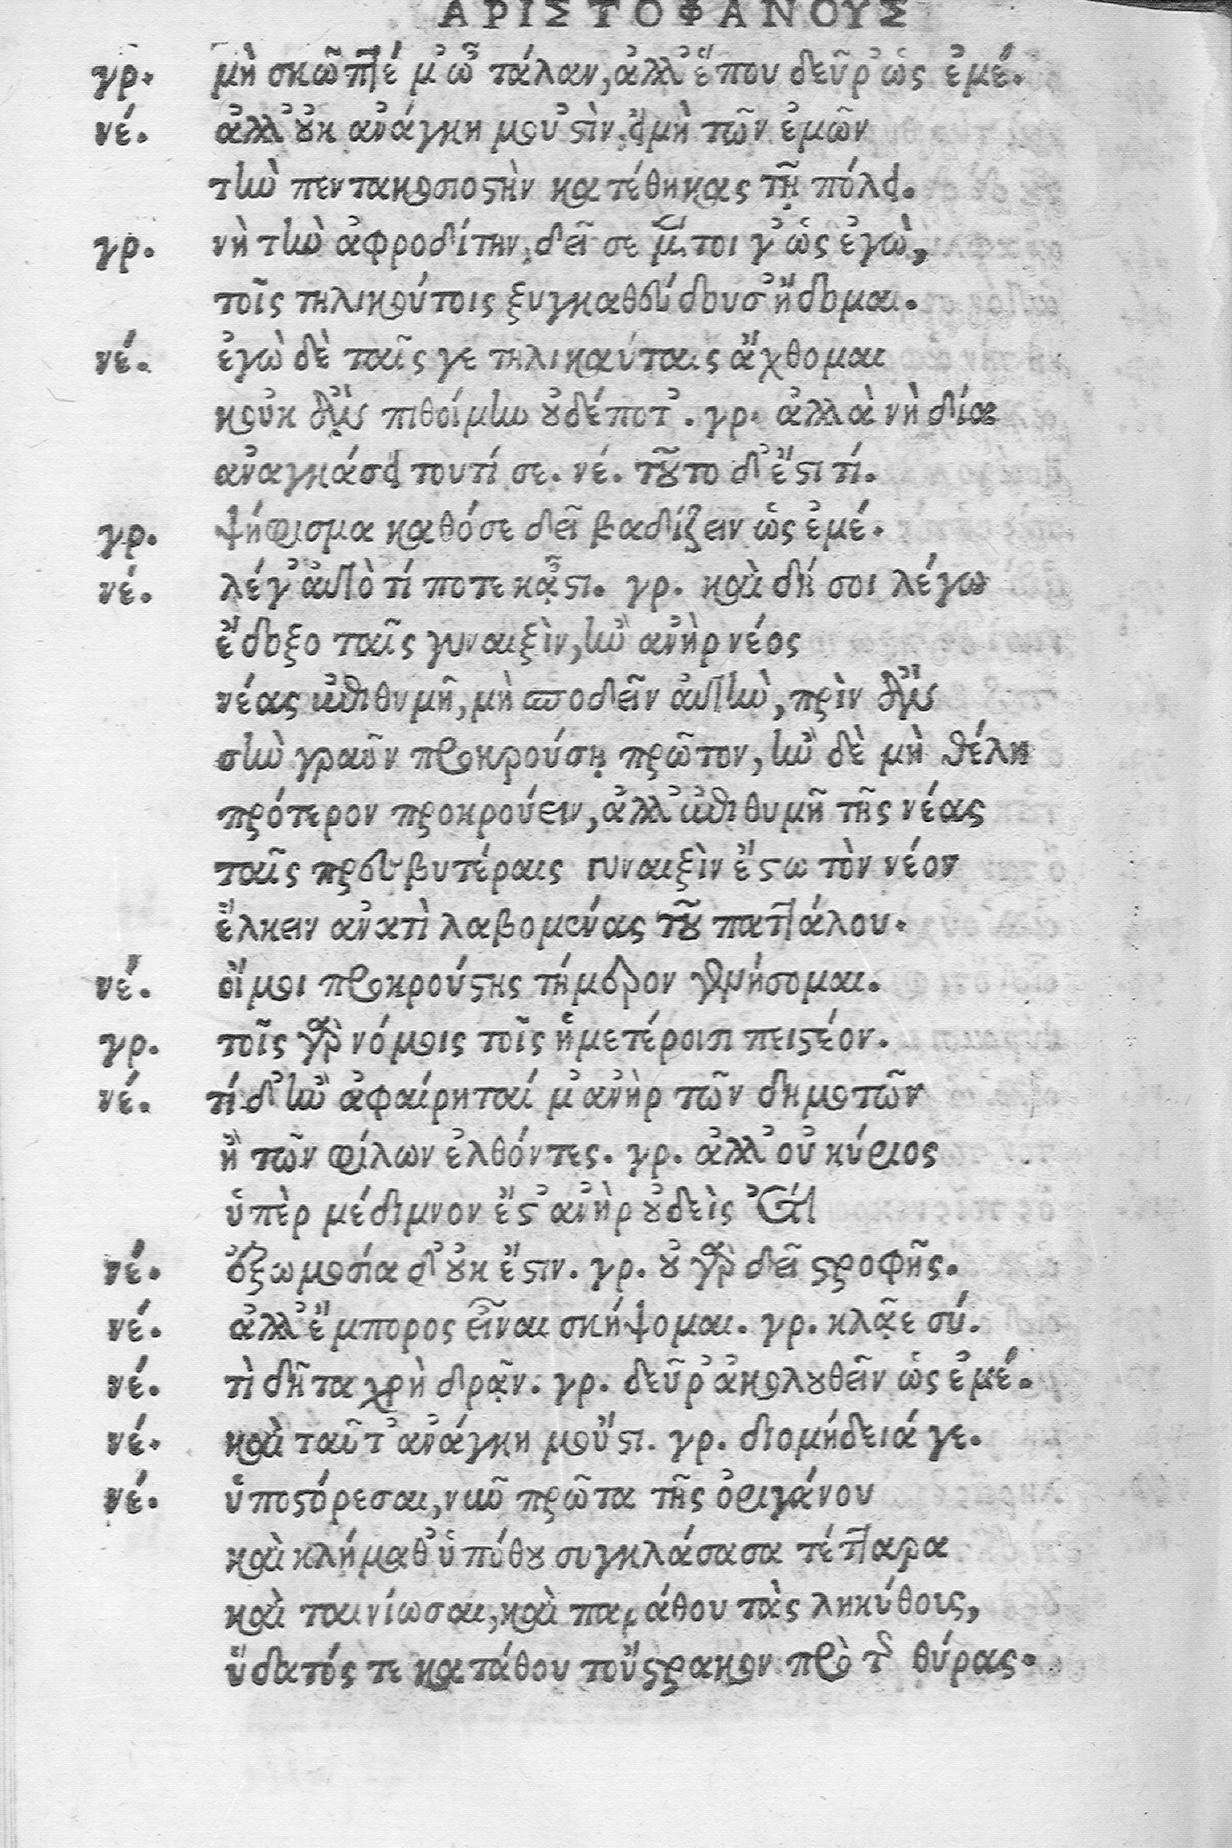 ΑΡΙΣΤΟΦΑΝΟΥΣ
γρ. μὴ σκῶπτέ μ' ὦ τάλαν, ἀλλ' ἕπου δεῦρ' ὡς ἐμέ.
νέ. ἀλλ' οὐκ ἀνάγκη μοὐστὶν, εἰ μὴ τῶν ἐμῶν
τὴν πεντακοσιοστὴν κατέθηκας τῇ πόλει.
γρ. νὴ τὴν ἀφροδίτην, δεῖ σε μέν τοι γ' ὡς ἐγὼ,
τοῖς τηλικούτοις ξυγκαθεύδουσ' ἥδομαι.
νέ. ἐγὼ δὲ ταῖς γε τηλικαύταις ἄχθομαι
κοὐκ ἂν πιθοίμην οὐδέποτ'. γρ. ἀλλὰ νὴ δία
ἀναγκάσει τουτί σε. νέ. τοῦτο δ' ἔστι τί.
γρ. ψήφισμα καθόσε δεῖ βαδίζειν ὡς ἐμέ.
νέ. λέγ' αὐτὸ τί ποτε κᾆστι. γρ. καὶ δή σοι λέγω
ἔδοξο ταῖς γυναιξὶν, ἢν ἀνὴρ νέος
νέας ἐπιθυμῇ, μὴ σποδεῖν αὐτὴν, πρὶν ἂν
τὴν γραῦν προκρούσῃ πρῶτον, ἢν δὲ μὴ θέλῃ
πρότερον προκρούειν, ἀλλ' ἐπιθυμῇ τῆς νέας
ταῖς πρεσβυτέραις γυναιξὶν ἔστω τὸν νέον
ἕλκειν ἀνατὶ λαβομένας τοῦ παττάλου.
νέ. οἴμοι προκρούστης τήμερον γενήσομαι.
γρ. τοῖς γὰρ νόμοις τοῖς ἡμετέροισι πειστέον.
νέ. τί δ' ἢν ἀφαίρηταί μ' ἀνὴρ τῶν δημοτῶν
ἢ τῶν φίλων ἐλθόντες. γρ. ἀλλ' οὐ κύριος
ὑπὲρ μέδιμνον ἔστ' ἀνὴρ οὐδεὶς ἔτι
νέ. ἐξωμοσία δ' οὐκ ἔστιν. γρ. οὐ γὰρ δεῖ στροφῆς.
νέ. ἀλλ' ἔμπορος εἶναι σκήψομαι. γρ. κλᾷε σύ.
νέ. τὶ δῆτα χρὴ δρᾷν. γρ. δεῦρ' ἀκολουθεῖν ὡς ἐμέ.
νέ. καὶ ταῦτ' ἀνάγκη μοὔστι. γρ. διομήδειά γε.
νέ. ὑποστόρεσαι, νῦν πρῶτα τῆς ὀριγάνου
καὶ κλήμαθ' ὑπόθου συγκλάσασα τέτταρα
καὶ ταινίωσαι, καὶ παράθου τὰς ληκύθους,
ὕδατός τε κατάθου τοὔστρακον πρὸ τῆς θύρας.